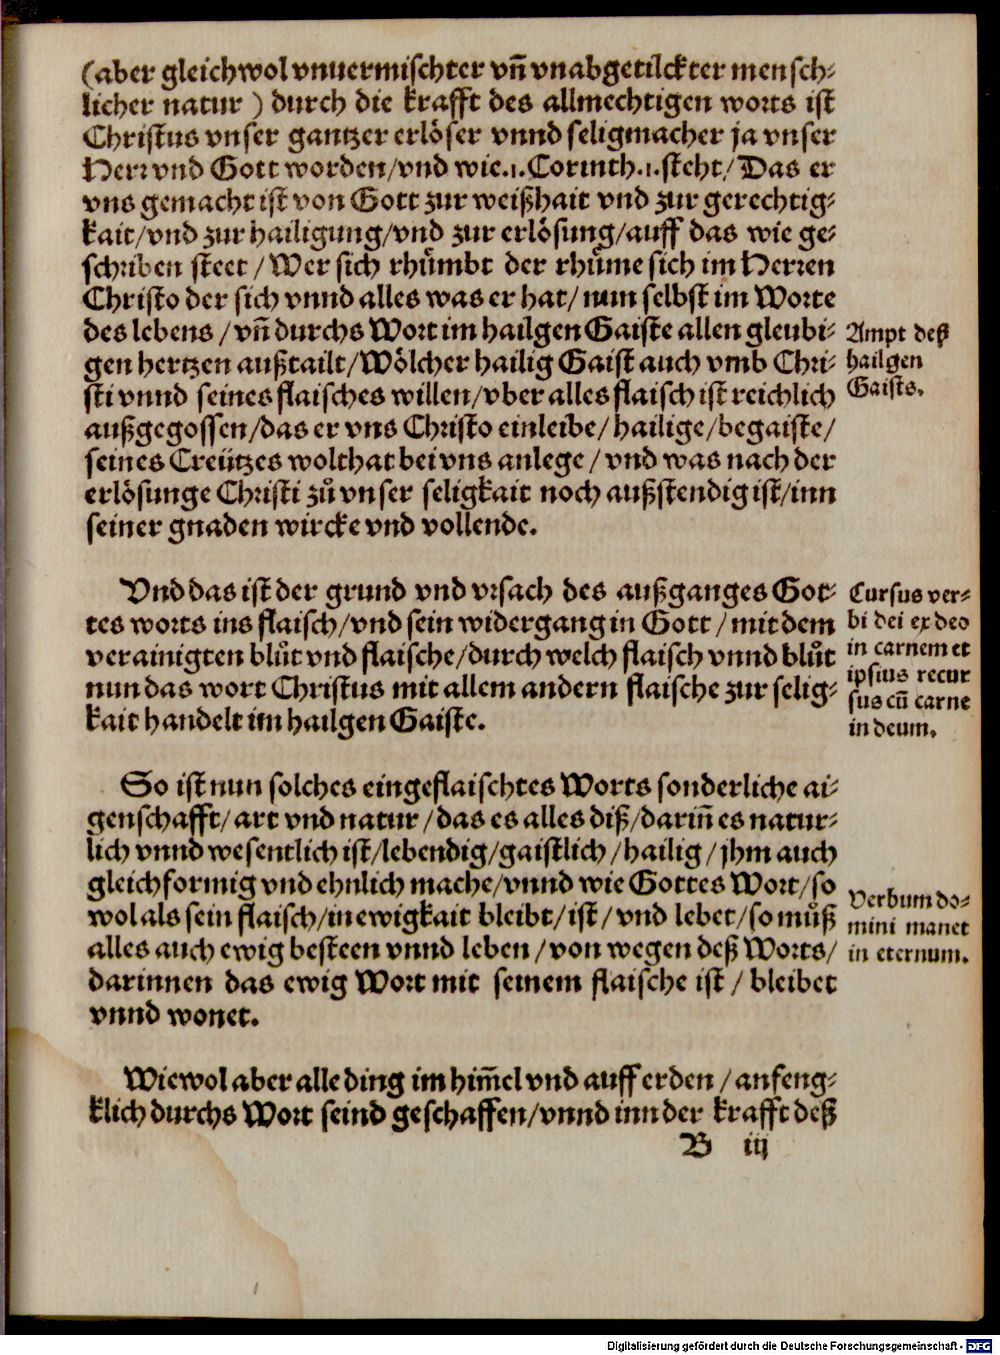 (aber gleichwol vnuermischter vn̄ vnabgetilckter mensch⸗
licher natur ) durch die krafft des allmechtigen worts ist
Christus vnser gantzer erlöser vnnd seligmacher ja vnser
Herr vnd Gott worden/vnd wie.1.Corinth.1.steht/Das er
vns gemacht ist von Gott zur weißhait vnd zur gerechtig⸗
kait/vnd zur hailigung/vnd zur erlösung/auff das wie ge⸗
schriben steet /Wer sich rhuͤmbt der rhuͤme sich im Herren
Christo der sich vnnd alles was er hat/ nun selbst im Worte
des lebens /vn̄ durchs Wort im hailgen Gaiste allen gleubi⸗
gen hertzen außtailt/Wölcher hailig Gaist auch vmb Chri⸗
sti vnnd seines flaisches willen/vber alles flaisch ist reichlich
außgegossen/das er vns Christo einleibe/hailige/begaiste/
seines Creützes wolthat bei vns anlege /vnd was nach der
erlösunge Christi zuͦ vnser seligkait noch außstendig ist/inn
seiner gnaden wircke vnd vollende.
Ampt deß
hailgen
Gaists.
Vnd das ist der grund vnd vrsach des außganges Got⸗
tes worts ins flaisch/vnd sein widergang in Gott /mit dem
verainigten bluͦt vnd flaische/durch welch flaisch vnnd bluͦt
nun das wort Christus mit allem andern flaische zur selig⸗
kait handelt im hailgen Gaiste.
Cursus ver⸗
bi dei ex deo
in carnem et
ipsius recur
sus cū carne
in deum.
So ist nun solches eingeflaischtes Worts sonderliche ai⸗
genschafft/art vnd natur /das es alles diß/darin̄ es natur⸗
lich vnnd wesentlich ist/lebendig/gaistlich/hailig/jhm auch
gleichformig vnd ehnlich mache/vnnd wie Gottes Wort/so
wol als sein flaisch/in ewigkait bleibt/ist/vnd lebet/so muͦß
alles auch ewig besteen vnnd leben /von wegen deß Worts/
darinnen das ewig Wort mit seinem flaische ist / bleibet
vnnd wonet.
Verbum do⸗
mini manet
in eternum.
Wiewol aber alle ding im him̄el vnd auff erden /anfeng⸗
klich durchs Wort seind geschaffen/vnnd inn der krafft deß
B iij
Digitalisierung gefördert durch die Deutsche Forschungsgemeinschaft - DFG